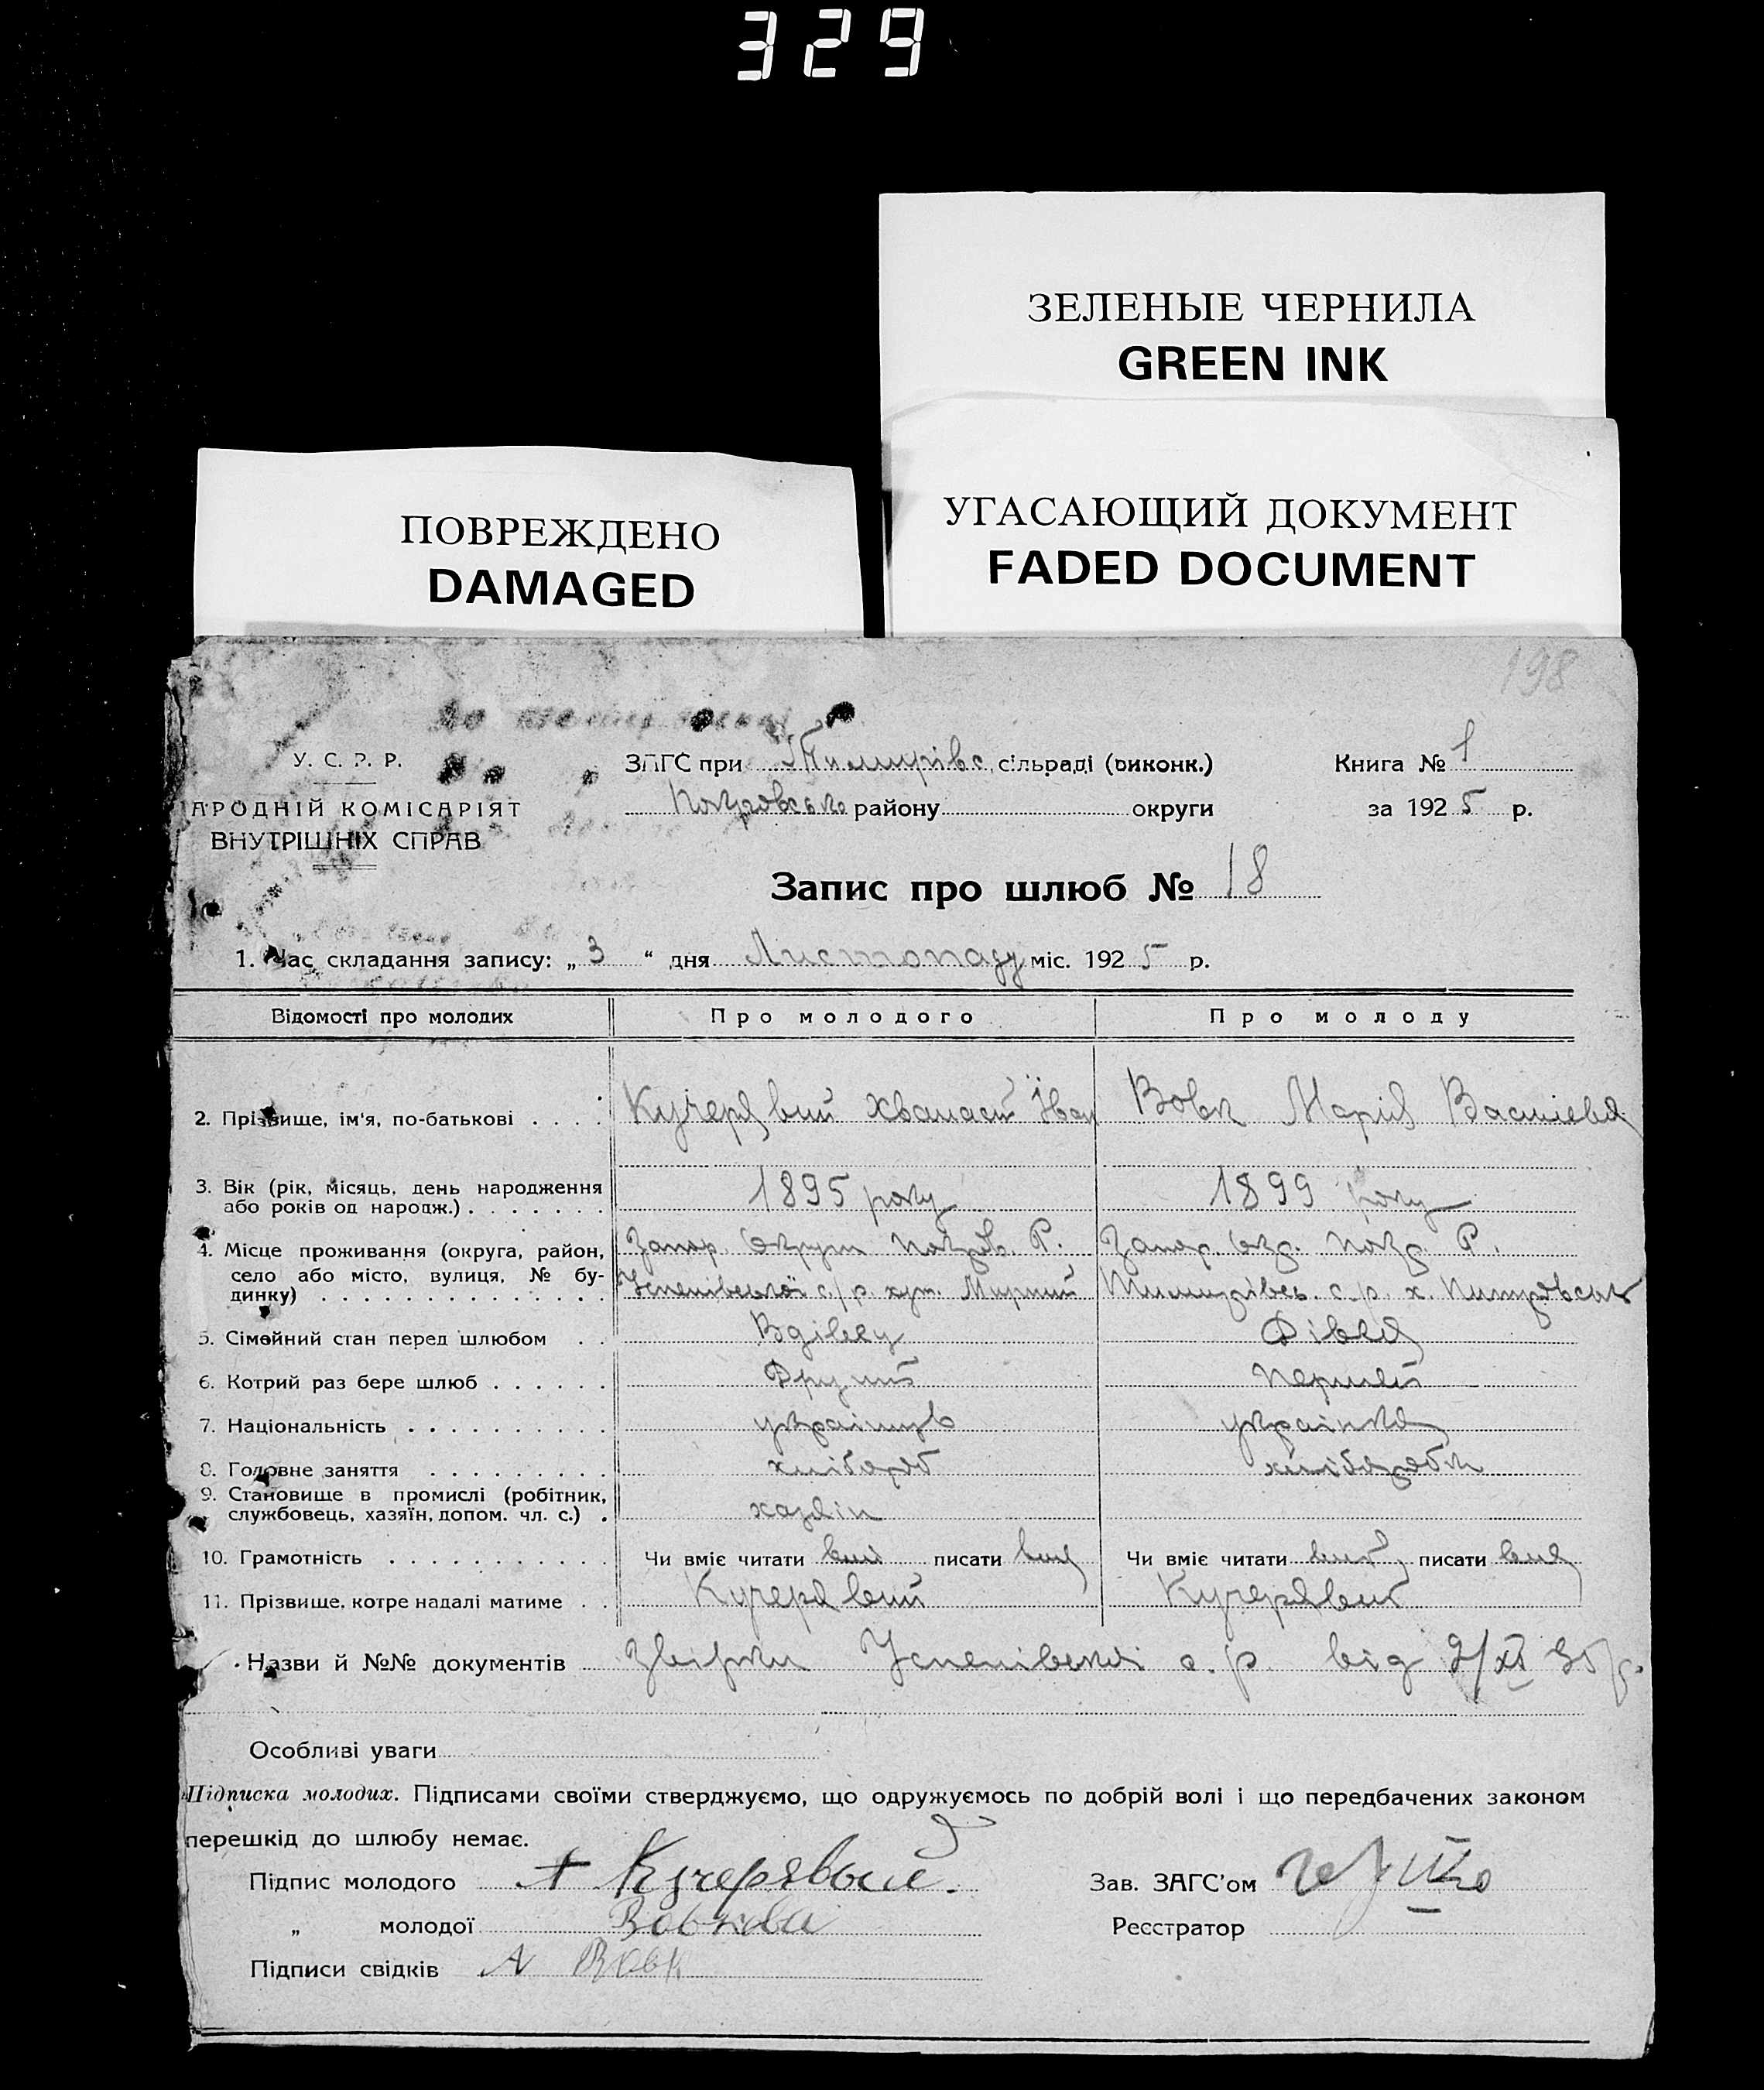 329
ЗЕЛЕНЫЕ ЧЕРНИЛА
GREEN INK
УГАСАЮЩИЙ ДОКУМЕНТ
FADED DOCUMENT
ПОВРЕЖДЕНО
DAMAGED
198
У. С. Р. Р.
ЗАГС при сільраді (виконк.) Книга № 1
АРОДНІЙ КОМІСАРІЯТ
ВНУТРІШНІХ СПРАВ
Покровсько району округи за 1925 р.
Запис про шлюб № 18
1. Час складання запису: „3“ дня Листопаду міс. 1925 р.
Відомості про молодих Про молодого Про молоду
2. Прізвище, ім'я, по-батькові Кучерявий Хванасій Іван Вовк Марія Василева
3. Вік (рік, місяць, день народження або років од народж.) 1895 року 1899 року
4. Місце проживання (округа, район, Запор. Округи Покров. Р. Запор. окр. Покр. Р.
село або місто, вулиця, № бу- Успенівської с/р. хут. Мирний с.р. х.
динку)
5. Сімейний стан перед шлюбом Вдівец Дівка
6. Котрий раз бере шлюб Другий Первий
7. Національність українця українка
8. Головне заняття хлібороб хлібороб
9. Становище в промислі (робітник, службовець, хазяїн, допом. чл. с.) хазяін
10. Грамотність Чи вміє читати вміє писати Чи вміє читати писати
11. Прізвище, котре надалі матиме Кучерявий Кучерявий
Назви й №№ документів Успенівскої с.р. від 2/XI 25 р.
Особливі уваги
Підписка молодих. Підписами своїми стверджуємо, що одружуємось по добрій волі і що передбачених законом
перешкід до шлюбу немає.
Підпис молодого + Кучерявый. Зав. ЗАГС'ом
„ молодої Вовкова Реєстратор
Підписи свідків А Вовк